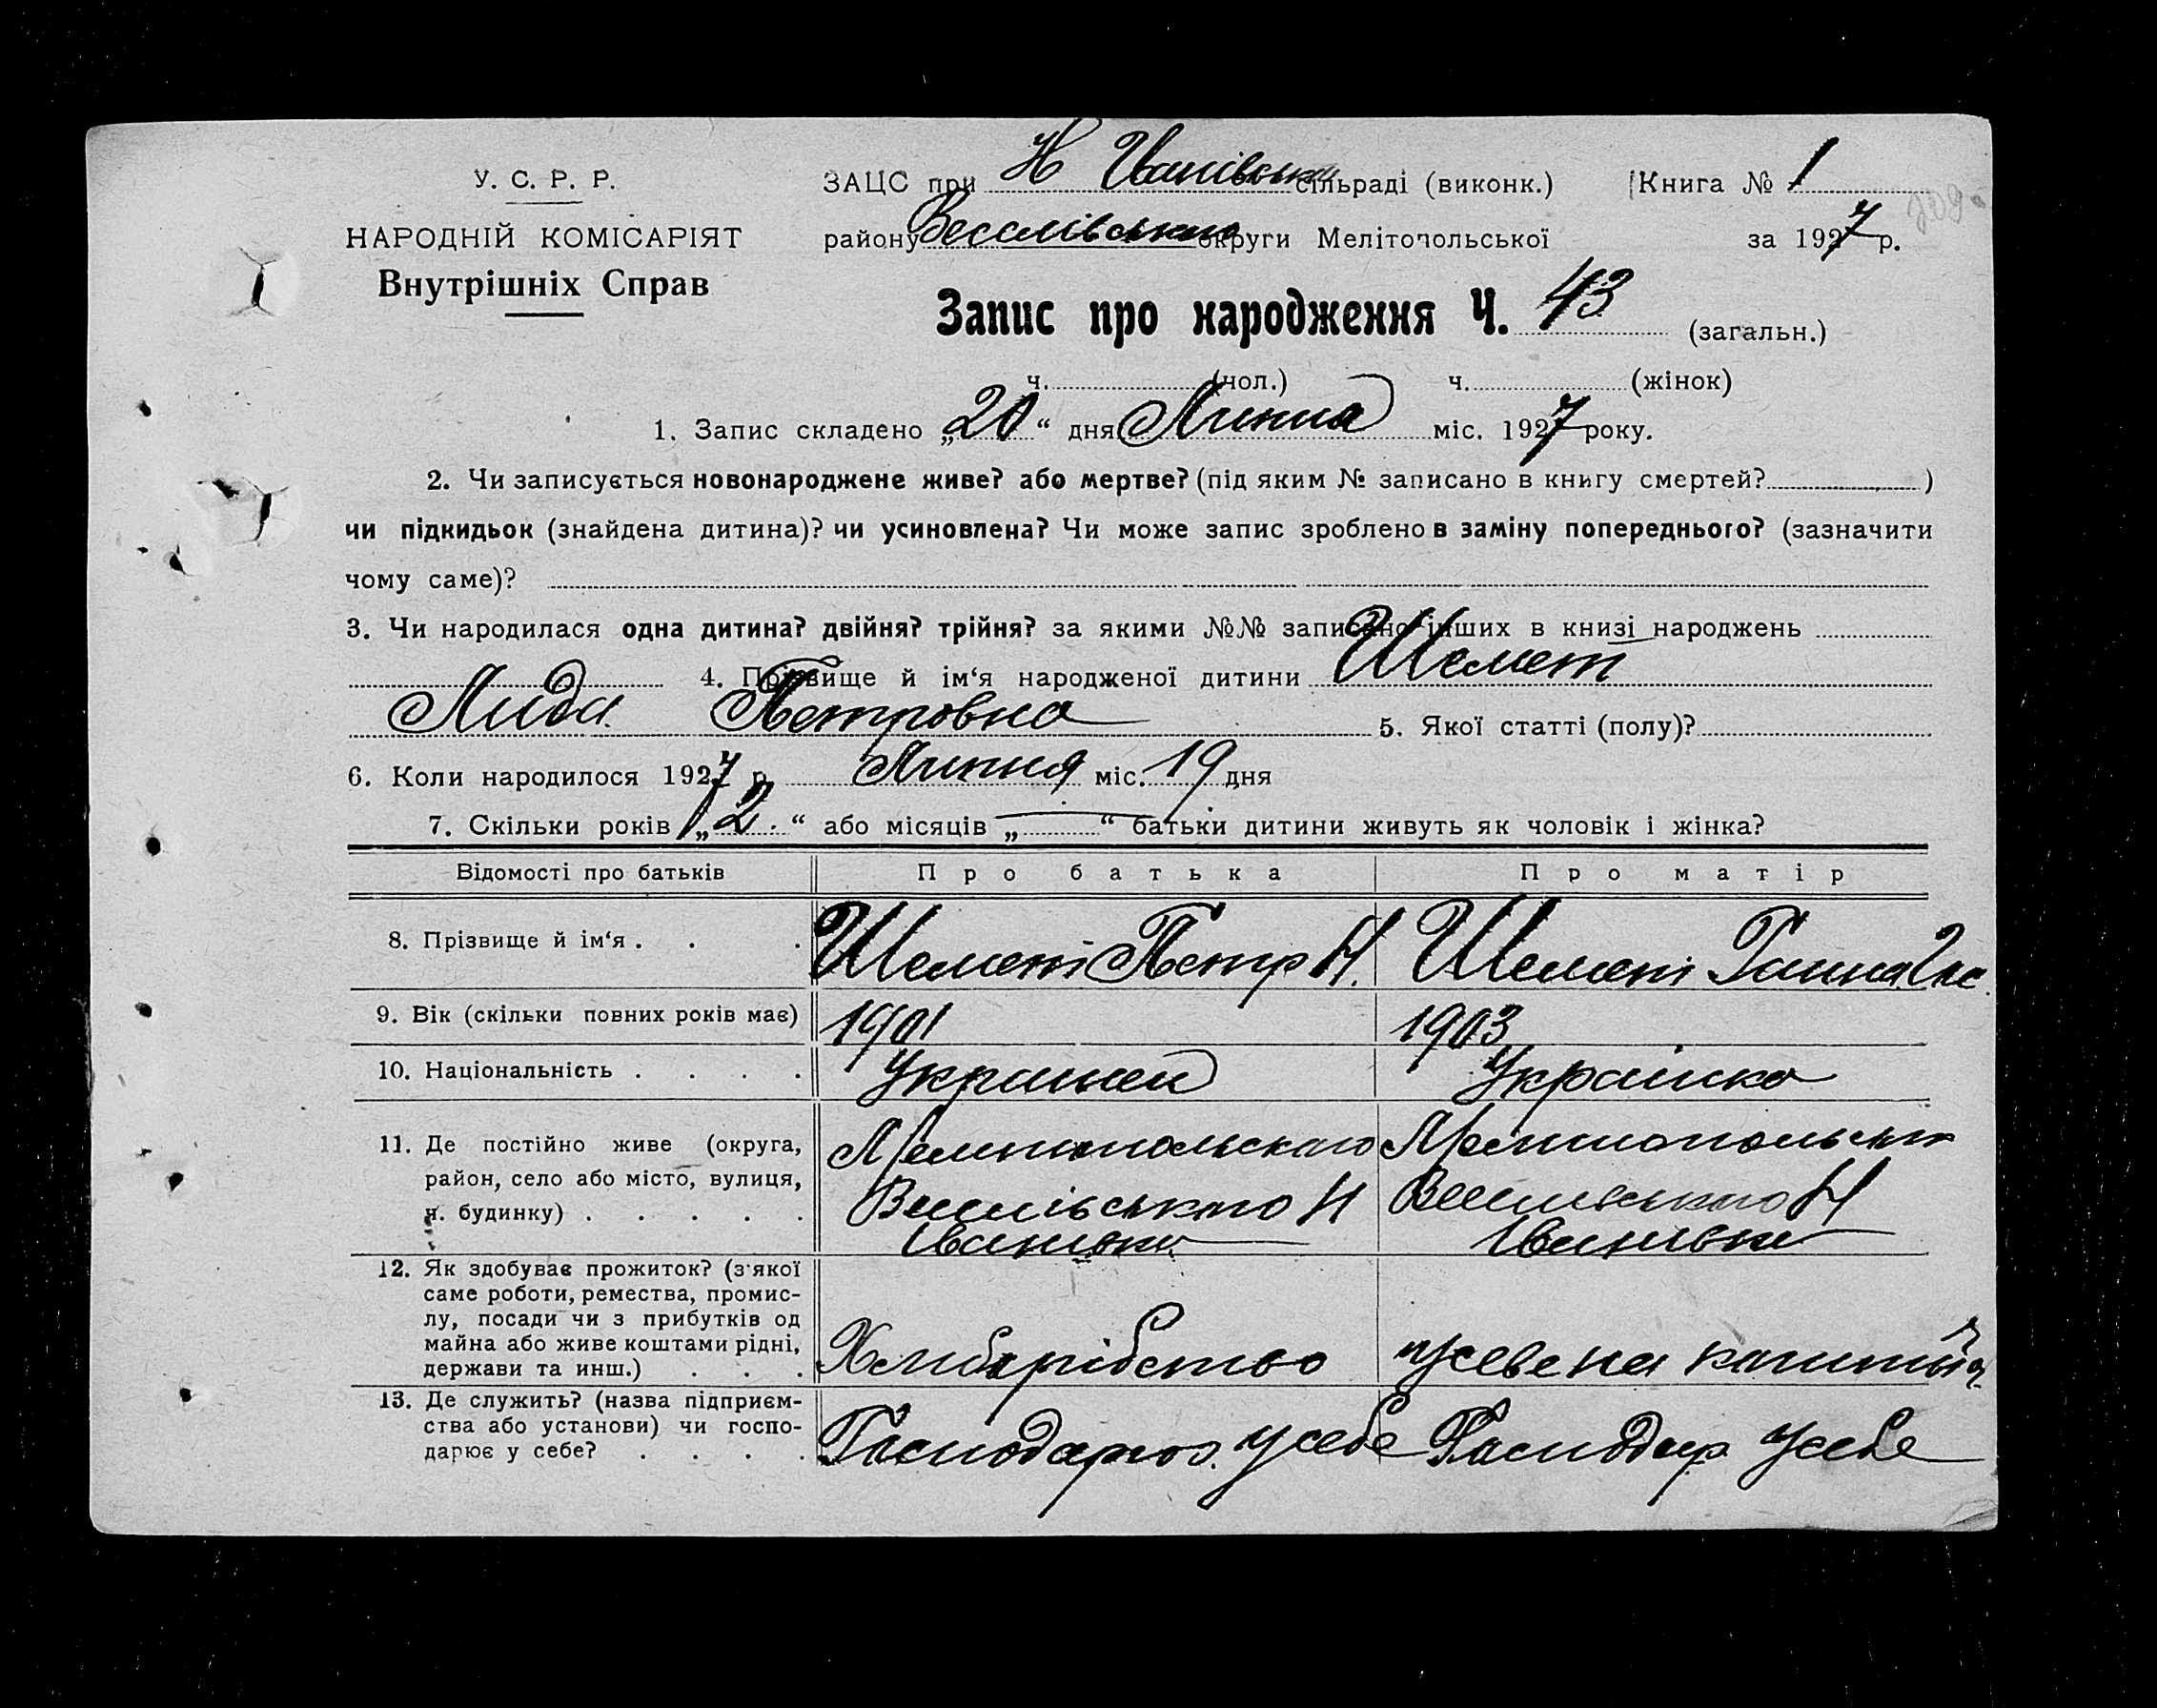 У. С. Р. Р.
НАРОДНІЙ КОМІСАРІЯТ
Внутрішніх Справ
ЗАЦС при Н Іванівськ сільраді (виконк.) Книга № 1
району Веселівського округи Мелітопольської за 1927 р.
Запис про народження Ч. 43 (загальн.)
ч. (чол.) ч. (жінок)
1. Запис складено „20“ дня Липня міс. 1927 року.
2. Чи записується новонароджене живе? або мертве? (під яким № записано в книгу смертей? )
чи підкидьок (знайдена дитина)? чи усиновлена? Чи може запис зроблено в заміну попереднього? (зазначити
чому саме)?
3. Чи народилася одна дитина? двійня? трійня? за якими №№ записано інших в книзі народжень
4. Прізвище й ім‘я народженої дитини Шемет
Лида Петровна 5. Якої статті (полу)?
6. Коли народилося 1927 р. Липня міс. 19 дня
7. Скільки років „2.“ або місяців „—“ батьки дитини живуть як чоловік і жінка?
Відомості про батьків Про батька Про матір
8. Прізвище й ім‘я . . . Шемет Петр Н. Шемет Ганна
9. Вік (скільки повних років має) 1901 1903
10. Національність . . . . Украинец Українка
11. Де постійно живе (округа,
район, село або місто, вулиця,
н. будинку) . . . . .
Мелитопольскаго
Веселівського Н
Іванівки
Мелитопольськ
Веселівського Н
Іванівки
12. Як здобуває прожиток? (з якої
саме роботи, ремества, промис-
лу, посади чи з прибутків од
майна або живе коштами рідні,
держави та инш.) . . .
Хлибарібство
13. Де служить? (назва підприєм-
ства або установи) чи госпо-
дарює у себе? . . . .
Господарює усебе
Господар усебе